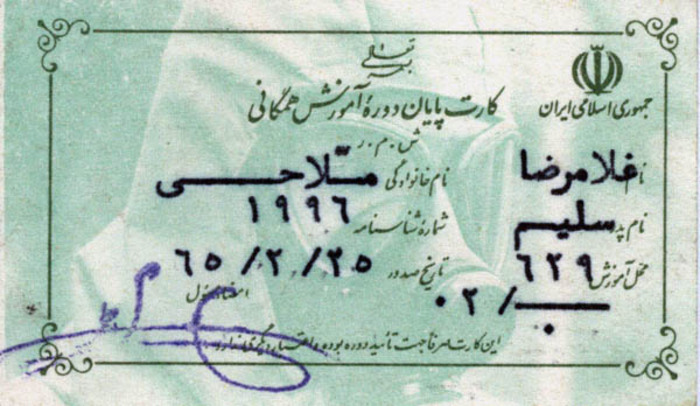 بسمه تعالی
جمهوری اسلامی ایران
کارت پایان دوره آموزش همگانی
ش.م.ر
نام غلامرضا نام خانوادگی ملاحی
نام پدر سلیم شماره شناسنامه ۱۹۹۶
محل آموزش ۶۲۹ تاریخ صدور ۶۵/۲/۲۵
۰۲/
امضاء مسئول
این کارت صرفاً جهت تأئید دوره بوده و اعتبار دیگری ندارد